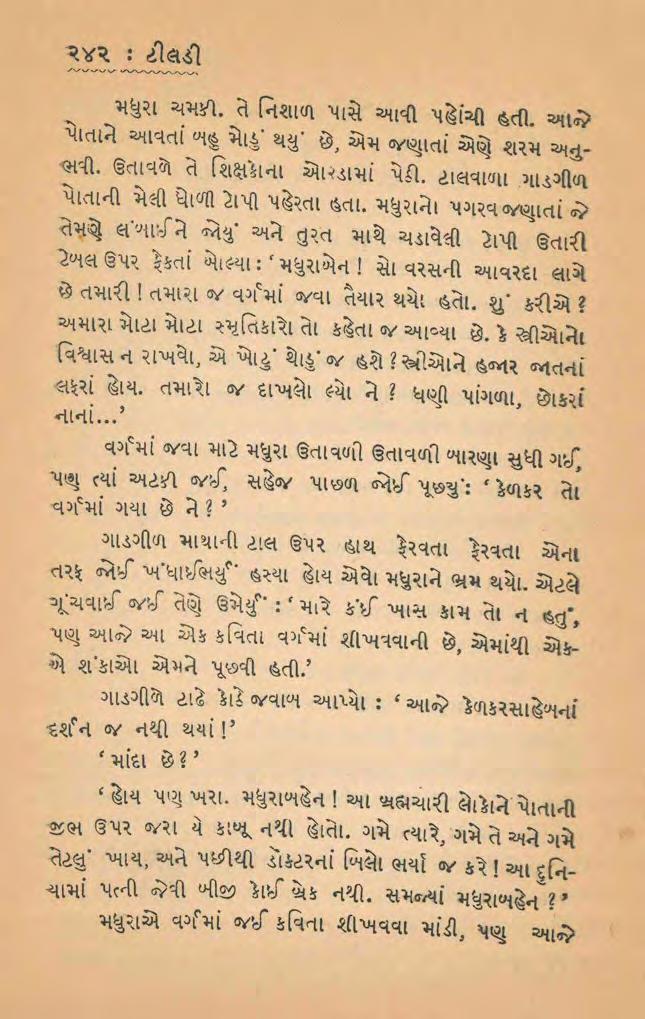 ૨૪૨ : ટીલડી
મધુરા ચમકી. તે નિશાળ પાસે આવી પહોંચી હતી. આજે
પોતાને આવતાં બહુ મોડું થયું છે, એમ જણાતાં એણે શરમ અનુ-
ભવી. ઉતાવળે તે શિક્ષકોના ઓરડામાં પેઠી. ટાલવાળા ગાડગીળ
પોતાની મેલી ધોળી ટોપી પહેરતા હતા. મધુરાનો પગરવ જણાતાં જ
તેમણે લંબાઈને જોયું અને તુરત માથે ચડાવેલી ટોપી ઉતારી
ટેબલ ઉપર ફેંકતાં બોલ્યા : ‘મધુરાબેન ! સો વરસની આવરદા લાગે
છે તમારી ! તમારા જ વર્ગમાં જવા તૈયાર થયો હતો. શું કરીએ ?
અમારા મોટા મોટા સ્મૃતિકારો તો કહેતા જ આવ્યા છે. કે સ્ત્રીઓનો
વિશ્વાસ ન રાખવો, એ ખોટું થોડું જ હશે ? સ્ત્રીઓને હજાર જાતનાં
લફરાં હોય. તમારો જ દાખલો લ્યો ને ? ધણી પાંગળા, છોકરાં
નાનાં...’
વર્ગમાં જવા માટે મધુરા ઉતાવળી ઉતાવળી બારણા સુધી ગઈ,
પણ ત્યાં અટકી જઈ, સહેજ પાછળ જોઈ પૂછ્યું : ‘કેળકર તો
વર્ગમાં ગયા છે ને ? ’
ગાડગીળ માથાની ટાલ ઉપર હાથ ફેરવતા ફેરવતા એના
તરફ જોઈ ખંધાઈભર્યું હસ્યા હોય એવો મધુરાને ભ્રમ થયો. એટલે
ગૂંચવાઈ જઈ તેણે ઉમેર્યું : ‘મારે કંઈ ખાસ કામ તો ન હતું,
પણ આજે આ એક કવિતા વર્ગમાં શીખવવાની છે, એમાંથી એક-
એ શંકાઓ એમને પૂછવી હતી.’
ગાડગીળે ટાઢે કોઠે જવાબ આપ્યો : ‘આજે કેળકરસાહેબનાં
દર્શન જ નથી થયાં !’
‘માંદા છે ? ’
‘હોય પણ ખરા. મધુરાબહેન ! આ બ્રહ્મચારી લોકોને પોતાની
જીભ ઉપર જરા યે કાબૂ નથી હોતો. ગમે ત્યારે, ગમે તે અને ગમે
તેટલું ખાય, અને પછીથી ડૉક્ટરનાં બિલો ભર્યા જ કરે ! આ દુનિ-
યામાં પત્ની જેવી બીજી કોઈ બ્રેક નથી. સમજ્યાં મધુરાબહેન ? ’
મધુરાએ વર્ગમાં જઈ કવિતા શીખવવા માંડી, પણ આજે